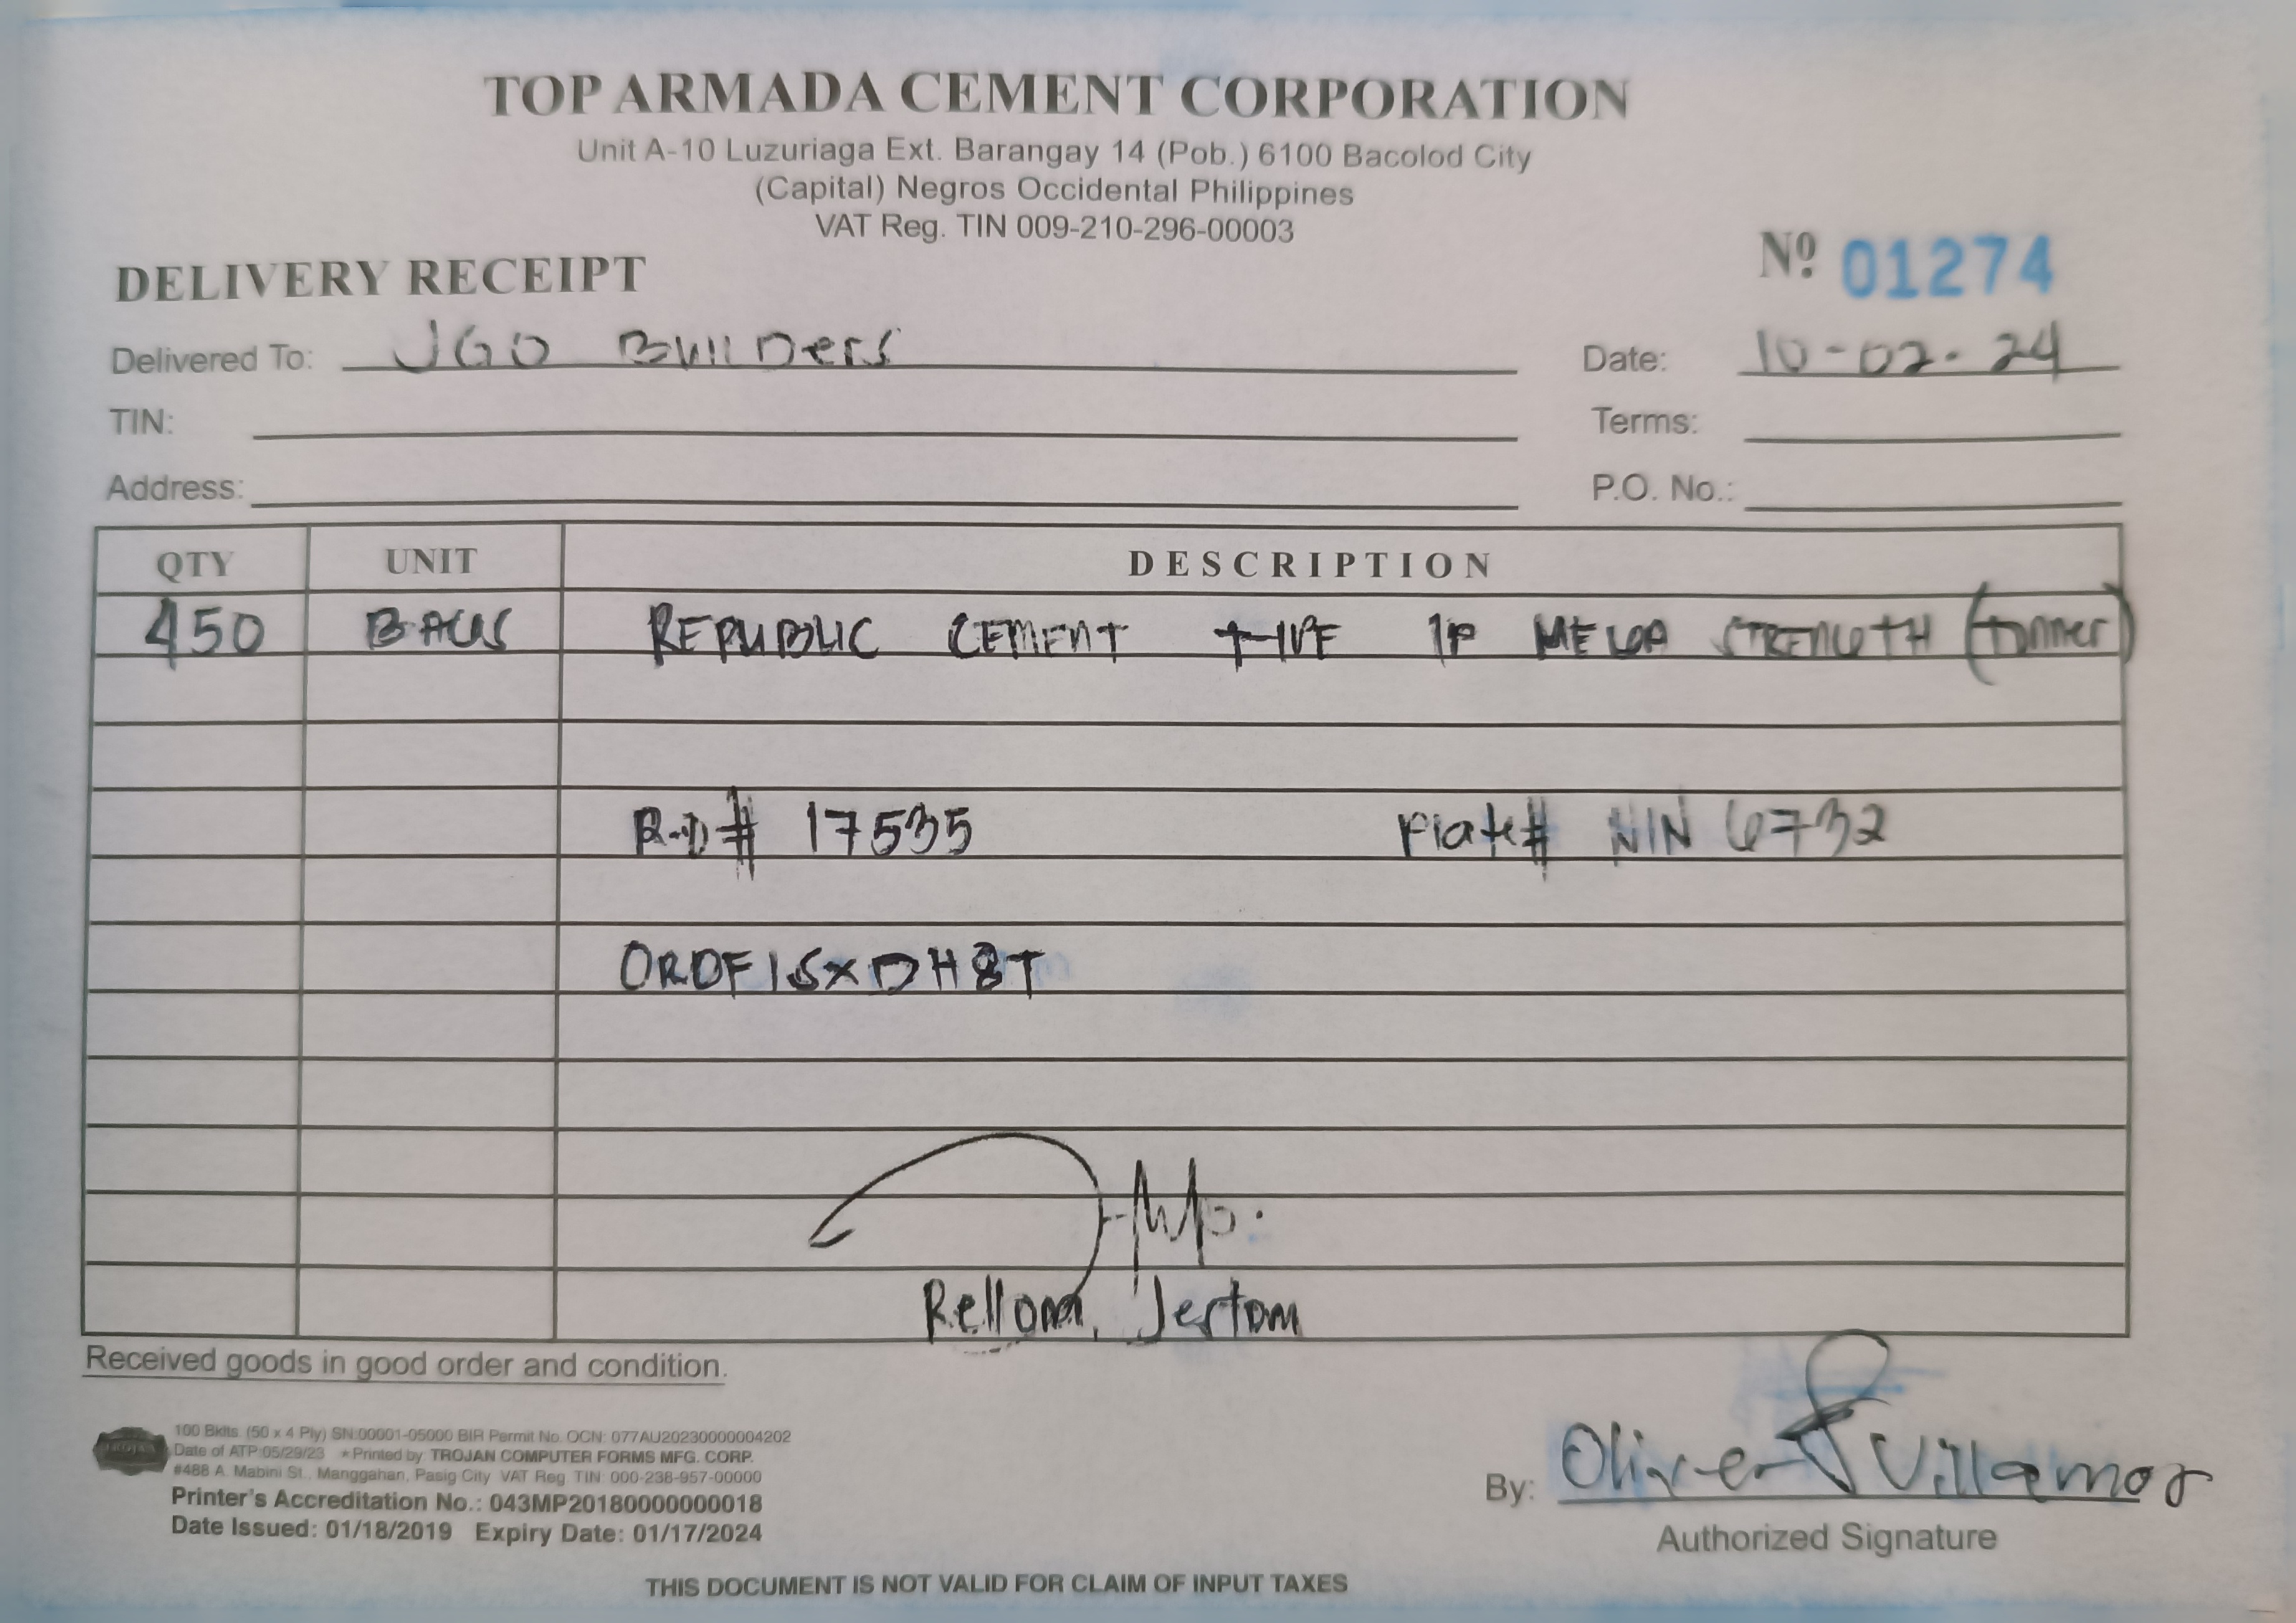 TOP ARMADA CEMENT CORPORATION
Unit A-10 Luzuriaga Ext. Barangay 14 (Pob.) 6100 Bacolod City
(Capital) Negros Occidental Philippines
VAT Reg. TIN 009-210-296-00003
DELIVERY RECEIPT Nº 01274
Delivered To: JGO BUILDers Date: 10-02-24
TIN: Terms:
Address: P.O. No.:
QTY UNIT DESCRIPTION
450 BAGS REPUBLIC CEMENT TYPE 1P MEGA STRENGTH (tonner)
R-D# 17535 Plate# NIN 6732
ORDF1SXDH8T
Jertom
Received goods in good order and condition.
TROJAN
100 Bklts. (50 x 4 Ply) SN:00001-05000 BIR Permit No. OCN: 077AU20230000004202
Date of ATP:05/29/23 ★Printed by: TROJAN COMPUTER FORMS MFG. CORP.
#488 A. Mabini St., Manggahan, Pasig City VAT Reg. TIN: 000-238-957-00000
Printer's Accreditation No.: 043MP20180000000018
Date Issued: 01/18/2019 Expiry Date: 01/17/2024
By: Oliver Villamor
Authorized Signature
THIS DOCUMENT IS NOT VALID FOR CLAIM OF INPUT TAXES